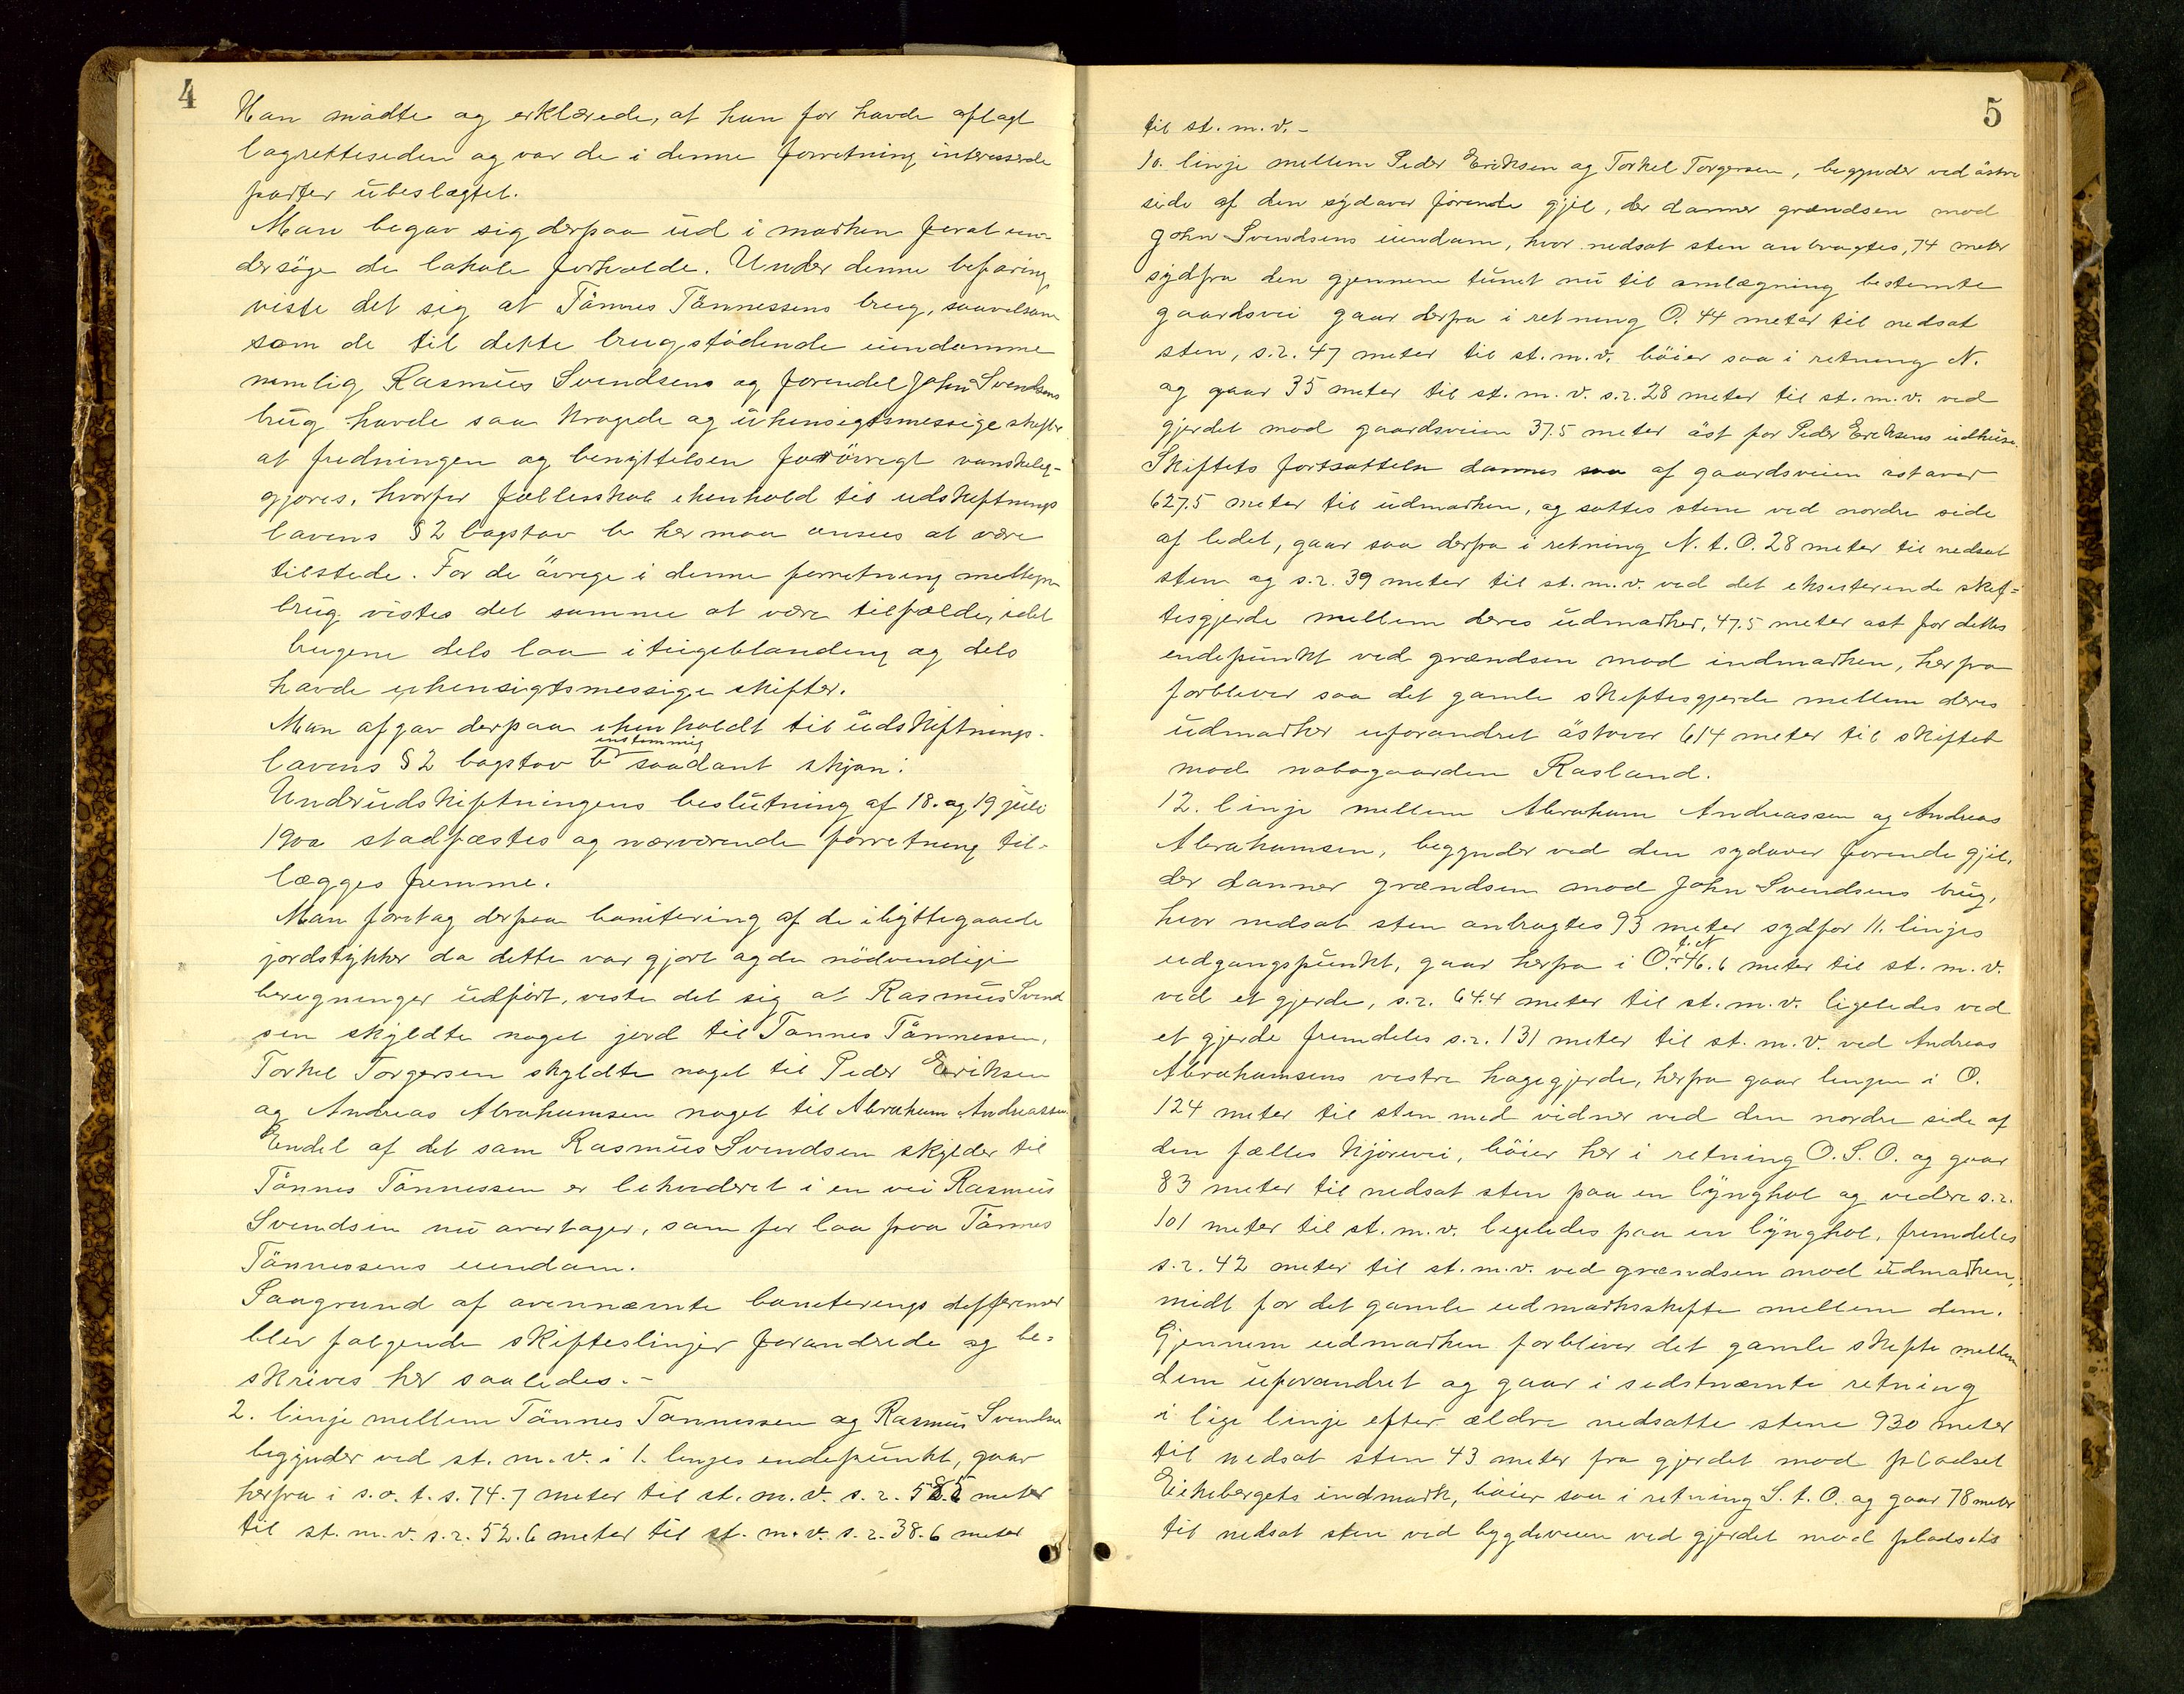 4
Han mödte og erklærede, at han før havde aflagt
lagretteseden og var de i denne forretning interesserede
parter ubeslægtet.
Man begav sig derpaa ud i marken forat un-
dersøge de lokale forholde. Under denne befaring
viste det sig at Tönnes Tönnessens brug, saavelsom
som de til dette brug stödende eiendomme
nemlig Rasmus Svendsens og forendel John Svendsens
brug havde saa krogede og uhensigtsmessige skifter
at fredningen og benyttelsen forövrigt vanskelig-
gjøres, hvorfor fællesskab ihenhold til udskiftnings
lovens § 2 bogstav b her maa ansees at være
tilstede. For de övrige i denne forretning
brug vistes det samme at være tilfælde, idet
brugene dels laa i teigeblanding og dels
havde uhensigtsmessige skifter.
Man afgav derpaa ihenholdt til udskiftnings-
lovens § 2 bogstav b enstemmig saadant skjøn:
Underudskiftningens beslutning af 18. og 19 juli
1900 stadfæstes og nærværende forretning til-
lægges fremme.
Man foretog derpaa bonitering af de ibyttegaaede
jordstykker da dette var gjort og de nödvendige
beregninger udført, viste det sig at Rasmus Svend
sen skyldte noget jord til Tönnes Tönnessen,
Torkel Torgersen skyldte noget til Peder Eriksen
og Andreas Abrahamsen noget til Abraham Andreassen.
Endel af det som Rasmus Svendsen skylder til
Tönnes Tönnessen er likvideret i en vei Rasmus
Svendsen nu overtager, som før laa paa Tönnes
Tönnessens eiendom.
Paagrund af ovennæmte boniterings differencer
blev følgende skifteslinjer forandrede og be=
skrives her saaledes.-
2. linje mellem Tönnes Tönnessen og Rasmus Svendsen
begynder ved st. m. v. i 1. linjes endepunkt, gaar
herfra i s.o. t. s. 74.7 meter til st. m. v. s. r. meter
til st. m. v. s. r. 52.6 meter til st. m. v. s. r. 38.6 meter
5
til st. m. v. -
10. linje mellem Peder Eriksen og Torkel Torgersen, begynder ved östre
side af den sydover førende gjil, der danner grændsen mod
John Svendsens eiendom, hvor nedsat sten anbragtes, 74 meter
sydfra den gjennem tunet nu til omlægning bestemte
gaardsvei gaar derfra i retning O. 44 meter til nedsat
sten, s. r. 47 meter til st. m. v. böier saa i retning N.
og gaar 35 meter til st. m. v. s. r. 28 meter til st. m. v. ved
gjerdet mod gaardsveien 37.5 meter öst for Peder Eriksens udhuse.
Skiftets fortsættelse dannes af gaardsveien östover
627.5 meter til udmarken, og sattes stene ved nordre side
af ledet, gaar saa derfra i retning N. t. O. 28 meter til nedsat
sten og s. r. 39 meter til st. m. v. ved det eksisterende skif=
tesgjerde mellem deres udmarker, 47.5 meter öst for dettes
endepunkt ved grændsen mod indmarken, herfra
forbliver saa det gamle skiftesgjerde mellem deres
udmarker uforandret östover 614 meter til skiftet
mod nabogaarden Rasland.
12. linje mellem Abraham Andreassen og Andreas
Abrahamsen, begynder ved den sydover førende gjil,
der danner grændsen mod John Svendsens brug,
hvor nedsat sten anbragtes 93 meter sydfor 11. linjes
udgangspunkt, gaar herfra i O. t. N. 46.6 meter til st. m. v.
ved et gjerde, s. r. 64.4 meter til st. m. v. ligeledes ved
et gjerde fremdeles s. r. 131 meter til st. m. v. ved Andreas
Abrahamsens vestre hagegjerde, herfra gaar linjen i O.
124 meter til sten med vidner ved den nordre side af
den fælles kjørevei, böier her i retning O. S. O. og gaar
83 meter til nedsat sten paa en lynghol og videre s. r.
101 meter til st. m. v. ligeledes paa en lynghol, fremdeles
s. r. 42 meter til st. m. v. ved grændsen mod udmarken,
midt for det gamle udmarksskifte mellem dem.
Gjennem udmarken forbliver det gamle skifte mellem
dem uforandret og gaar i sidstnæmte retning
i lige linje efter ældre nedsatte stene 930 meter
til nedsat sten 43 meter fra gjerdet mod pladset
Eikebergets indmark, böier saa i retning S. t. O. og gaar 78 meter
til nedsat sten ved bygdeveien ved gjerdet mod pladsets